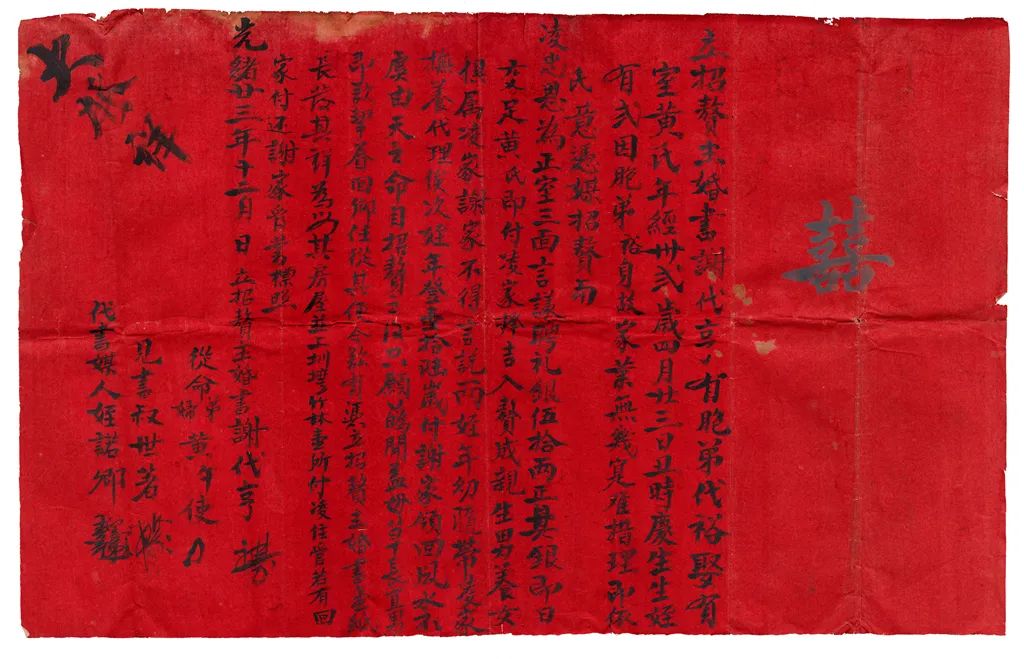 囍
立招贅主婚書謝代亨有胞弟代裕娶有
室黃氏年經卅弍歲四月廿三日丑時慶生生姪
有弍因胞弟裕身故家業無幾寬难措理即依
氏意憑媒招贅而
凌忠恩為正室三面言議聘礼銀伍拾両正其銀即日
交足黃氏即付凌家擇吉入贅成親生男養女
係属凌家謝家不得言説両姪年幼隨帶凌家
撫養代理俟次姪年登壹拾陸歲付謝家領回風水不
虞由天之命自招贅之後
即欵挈眷回鄉任從其任今欲有憑立招贅主婚書壹紙
長發其祥為炤其房屋並上圳埔竹林壹所付凌住管若有回
家付还謝家管業標照
光緒廿三年十二月 日立招贅主婚書謝代亨
從命弟婦黃
見書叔世著
代書媒人姪諾卿